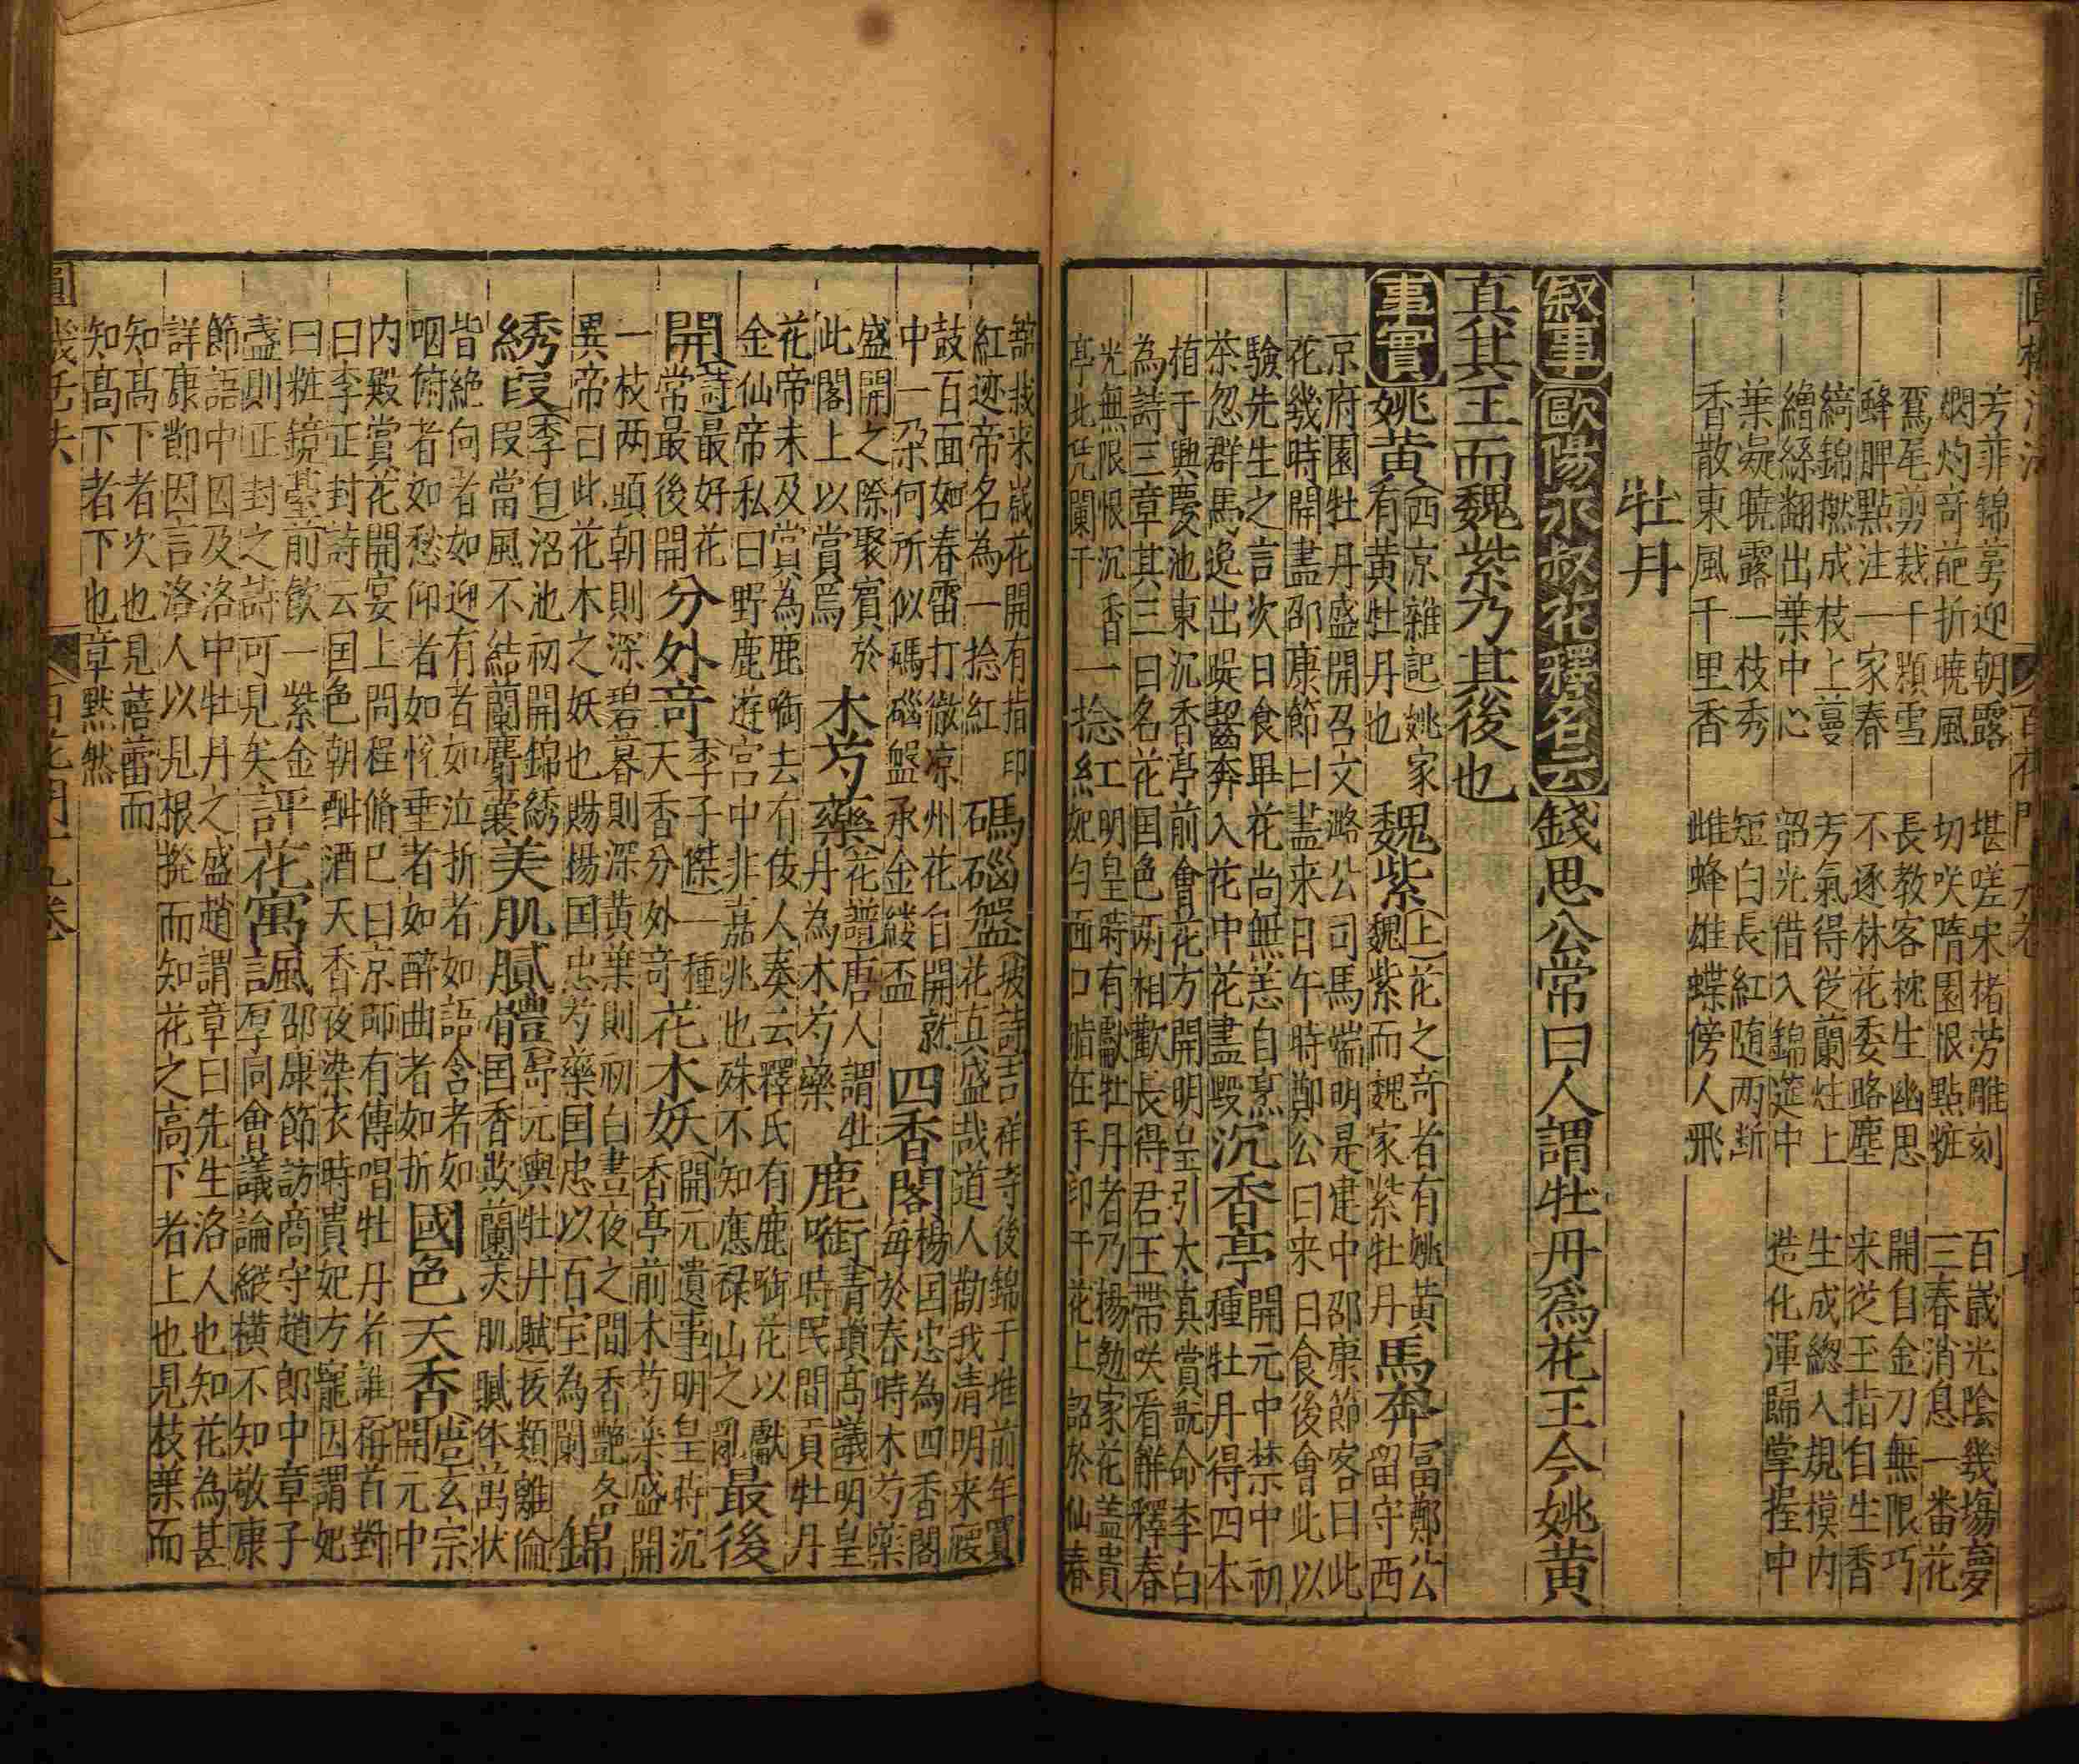 芳菲錦萼迎朝露　堪嗟宋楮劳雕刻　百嵗光陰幾塲夢
燗灼竒葩折曉風　切咲隋園恨點粧　三春消息一番花
鴛尾剪裁千顆雪　長教客枕生幽思　開自金刀無限巧
蜂脾點注一家春　不逐林花委路塵　来從王指自生香
綺錦撚成枝上蔓　芳氣得從蘭灶上　生成總入規模内
繒絲翻出葉中心　韶光借入錦筵中　造化渾歸掌握中
葉凝曉露一枝秀　短白長紅随两㫁
香散東風千里香　雌蜂雄蝶傍人飛
牡丹
叙事　歐陽永叔花釋名云　錢思公常曰人謂牡丹為花王今姚黄
真其王而魏紫乃其後也
事實　姚黄　西京雜記姚家
有黄牡丹也　魏紫　上花之竒者有姚黄
魏紫而魏家紫牡丹　馬奔　冨鄭公
留守西
京府園牡丹盛開召文潞公司馬端明是建中邵康節客曰此
花幾時開盡邵康節曰盡来日午時鄭公曰来日食後會此以
驗先生之言次日食畢花尚無恙自烹
茶忽群馬逸出𠿒齧奔入花中花盡毀　沉香亭　開元中禁中初
種牡丹得四本
植于興慶池東沉香亭前會花方開明皇引太真賞翫命李白
為詩三章其三曰名花国色两相歡長得君王帶咲看觧釋春
光無限恨沉香
亭北凭闌干　一捻紅　明皇時有獻牡丹者乃楊勉家花盖貴
妃匀面口脂在手印于花上詔於仙春
舘栽来嵗花開有指印
紅迹帝名為一捻紅　碼碯盤　坡詩吉祥寺後錦于堆前年賞
花真盛哉道人勸我清明来腰
鼓百面如春雷打徹凉州花自開就
中一朶何所似碼碯盤承金縷盃　四香閣　楊国忠為四香閣
每於春時木芍藥
盛開之際聚賓於
此閣上以賞焉　木芍藥　花譜唐人謂牡
丹為木芍藥　鹿啣　青瑣高議明皇
時民間貢牡丹
花帝未及賞為鹿啣去有佞人奏云釋氏有鹿啣花以獻
金仙帝私曰野鹿遊宫中非嘉兆也殊不知應禄山之亂　最後
開　詩最好花
常最後開　分外竒　李子傑一種
天香分外竒　花木妖　開元遺事明皇時沉
香亭前木芍藥盛開
一枝两頭朝則深碧暮則深黄葉則初白晝夜之間香艶各
異帝曰此花木之妖也賜楊国忠芍藥国忠以百宝為闌　錦
綉段　李自沼池初開錦綉
段當風不結蘭麝囊　美肌膩體　舒元輿牡丹賦拔類離倫
国香欺蘭美肌膩体萬状
皆絶向者如迎有者如泣折者如語含者如
咽俯者如愁仰者如悦垂者如醉曲者如折　國色天香　唐玄宗
開元中
内殿賞花開宴上問程脩巳曰京師有傳唱牡丹者誰稱首對
曰李正封詩云国色朝酣酒天香夜染衣時貴妃方寵因謂妃
曰粧鏡臺前飲一紫金
盞則正封之詩可見矣　評花寓諷　邵康節訪商守趙郎中章子
厚同會議論縱横不知敬康
節語中因及洛中牡丹之盛趙謂章曰先生洛人也知花為甚
詳康節因言洛人以見根撥而知花之高下者上也見枝葉而
知高下者次也見蓓蕾而
知高下者下也章默然